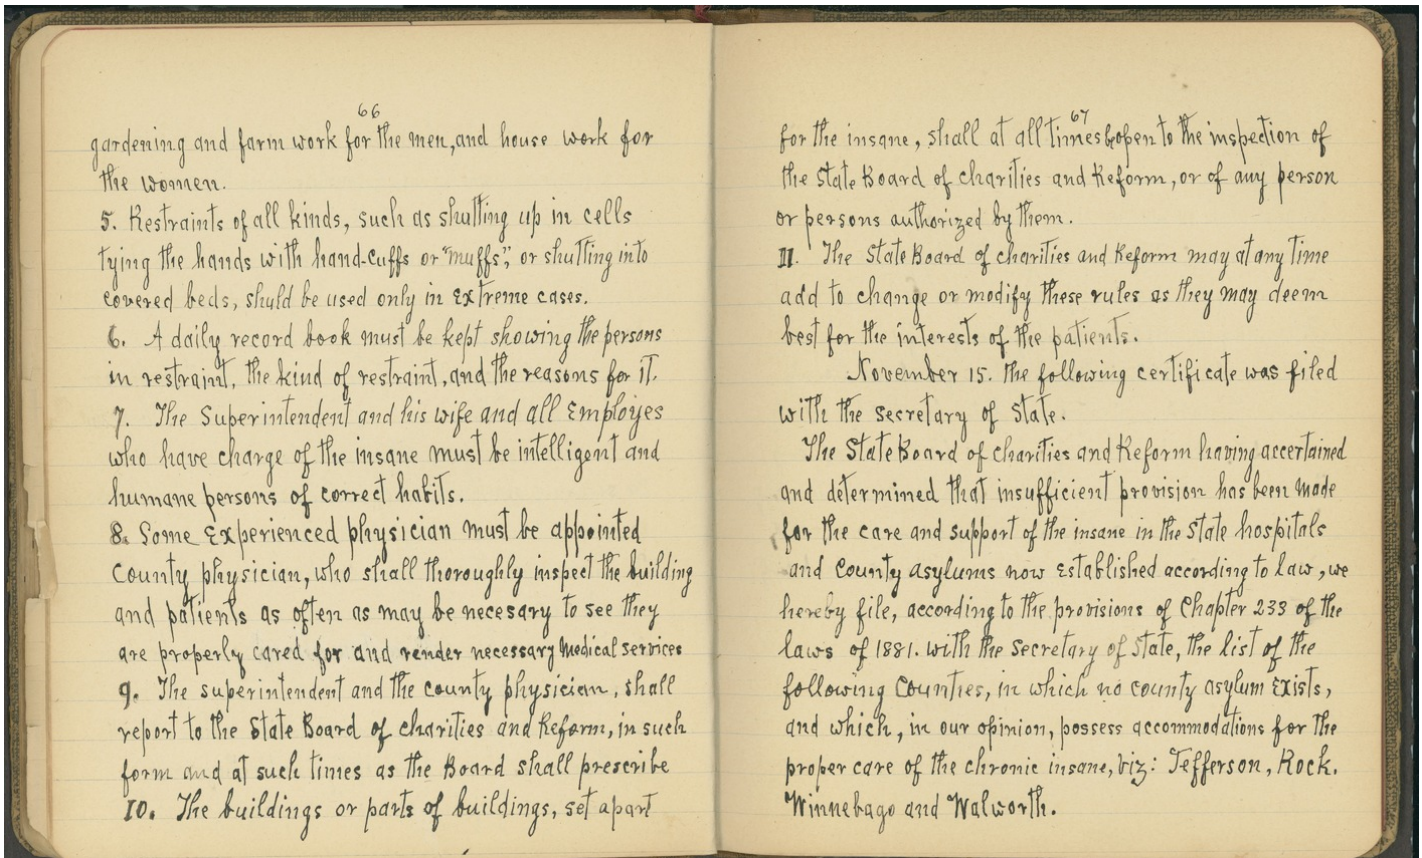 66
gardening and farm work for the men, and house work for
the women.
5. Restraints of all kinds, such as shutting up in cells
tying the hands with hand-cuffs or "muffs", or shutting into
covered beds, shuld be used only in Extreme cases.
6. A daily record book must be kept showing the persons
in restraint, the kind of restraint, and the reasons for it.
7. The Superintendent and his wife and all Employes
who have charge of the insane must be intelligent and
humane persons of correct habits.
8. Some Experienced physician must be appointed
County physician, who shall thoroughly inspect the building
and patients as often as may be necesary to see they
are properly cared for and render necessary Medical services
9. The superintendent and the county physician, shall
report to the State Board of charities and Reform, in such
form and at such times as the Board shall prescribe
10. The buildings or parts of buildings, set apart
67
for the insane, shall at all times be open to the inspection of
the State Board of charities and Reform, or of any person
or persons authorized by them.
11. The State Board of charities and Reform may at any time
add to change or modify these rules as they may deem
best for the interests of the patients.
November 15. The following certificate was filed
with the secretary of State.
The State Board of charities and Reform having accertained
and determined that insufficient provision has been made
for the care and support of the insane in the State hospitals
and County asylums now Established according to law, we
hereby file, according to the provisions of Chapter 233 of the
laws of 1881. with the Secretary of State, the list of the
following Counties, in which no county asylum Exists,
and which, in our opinion, possess accommodations for the
proper care of the chronic insane, viz: Jefferson, Rock.
Winnebago and Walworth.